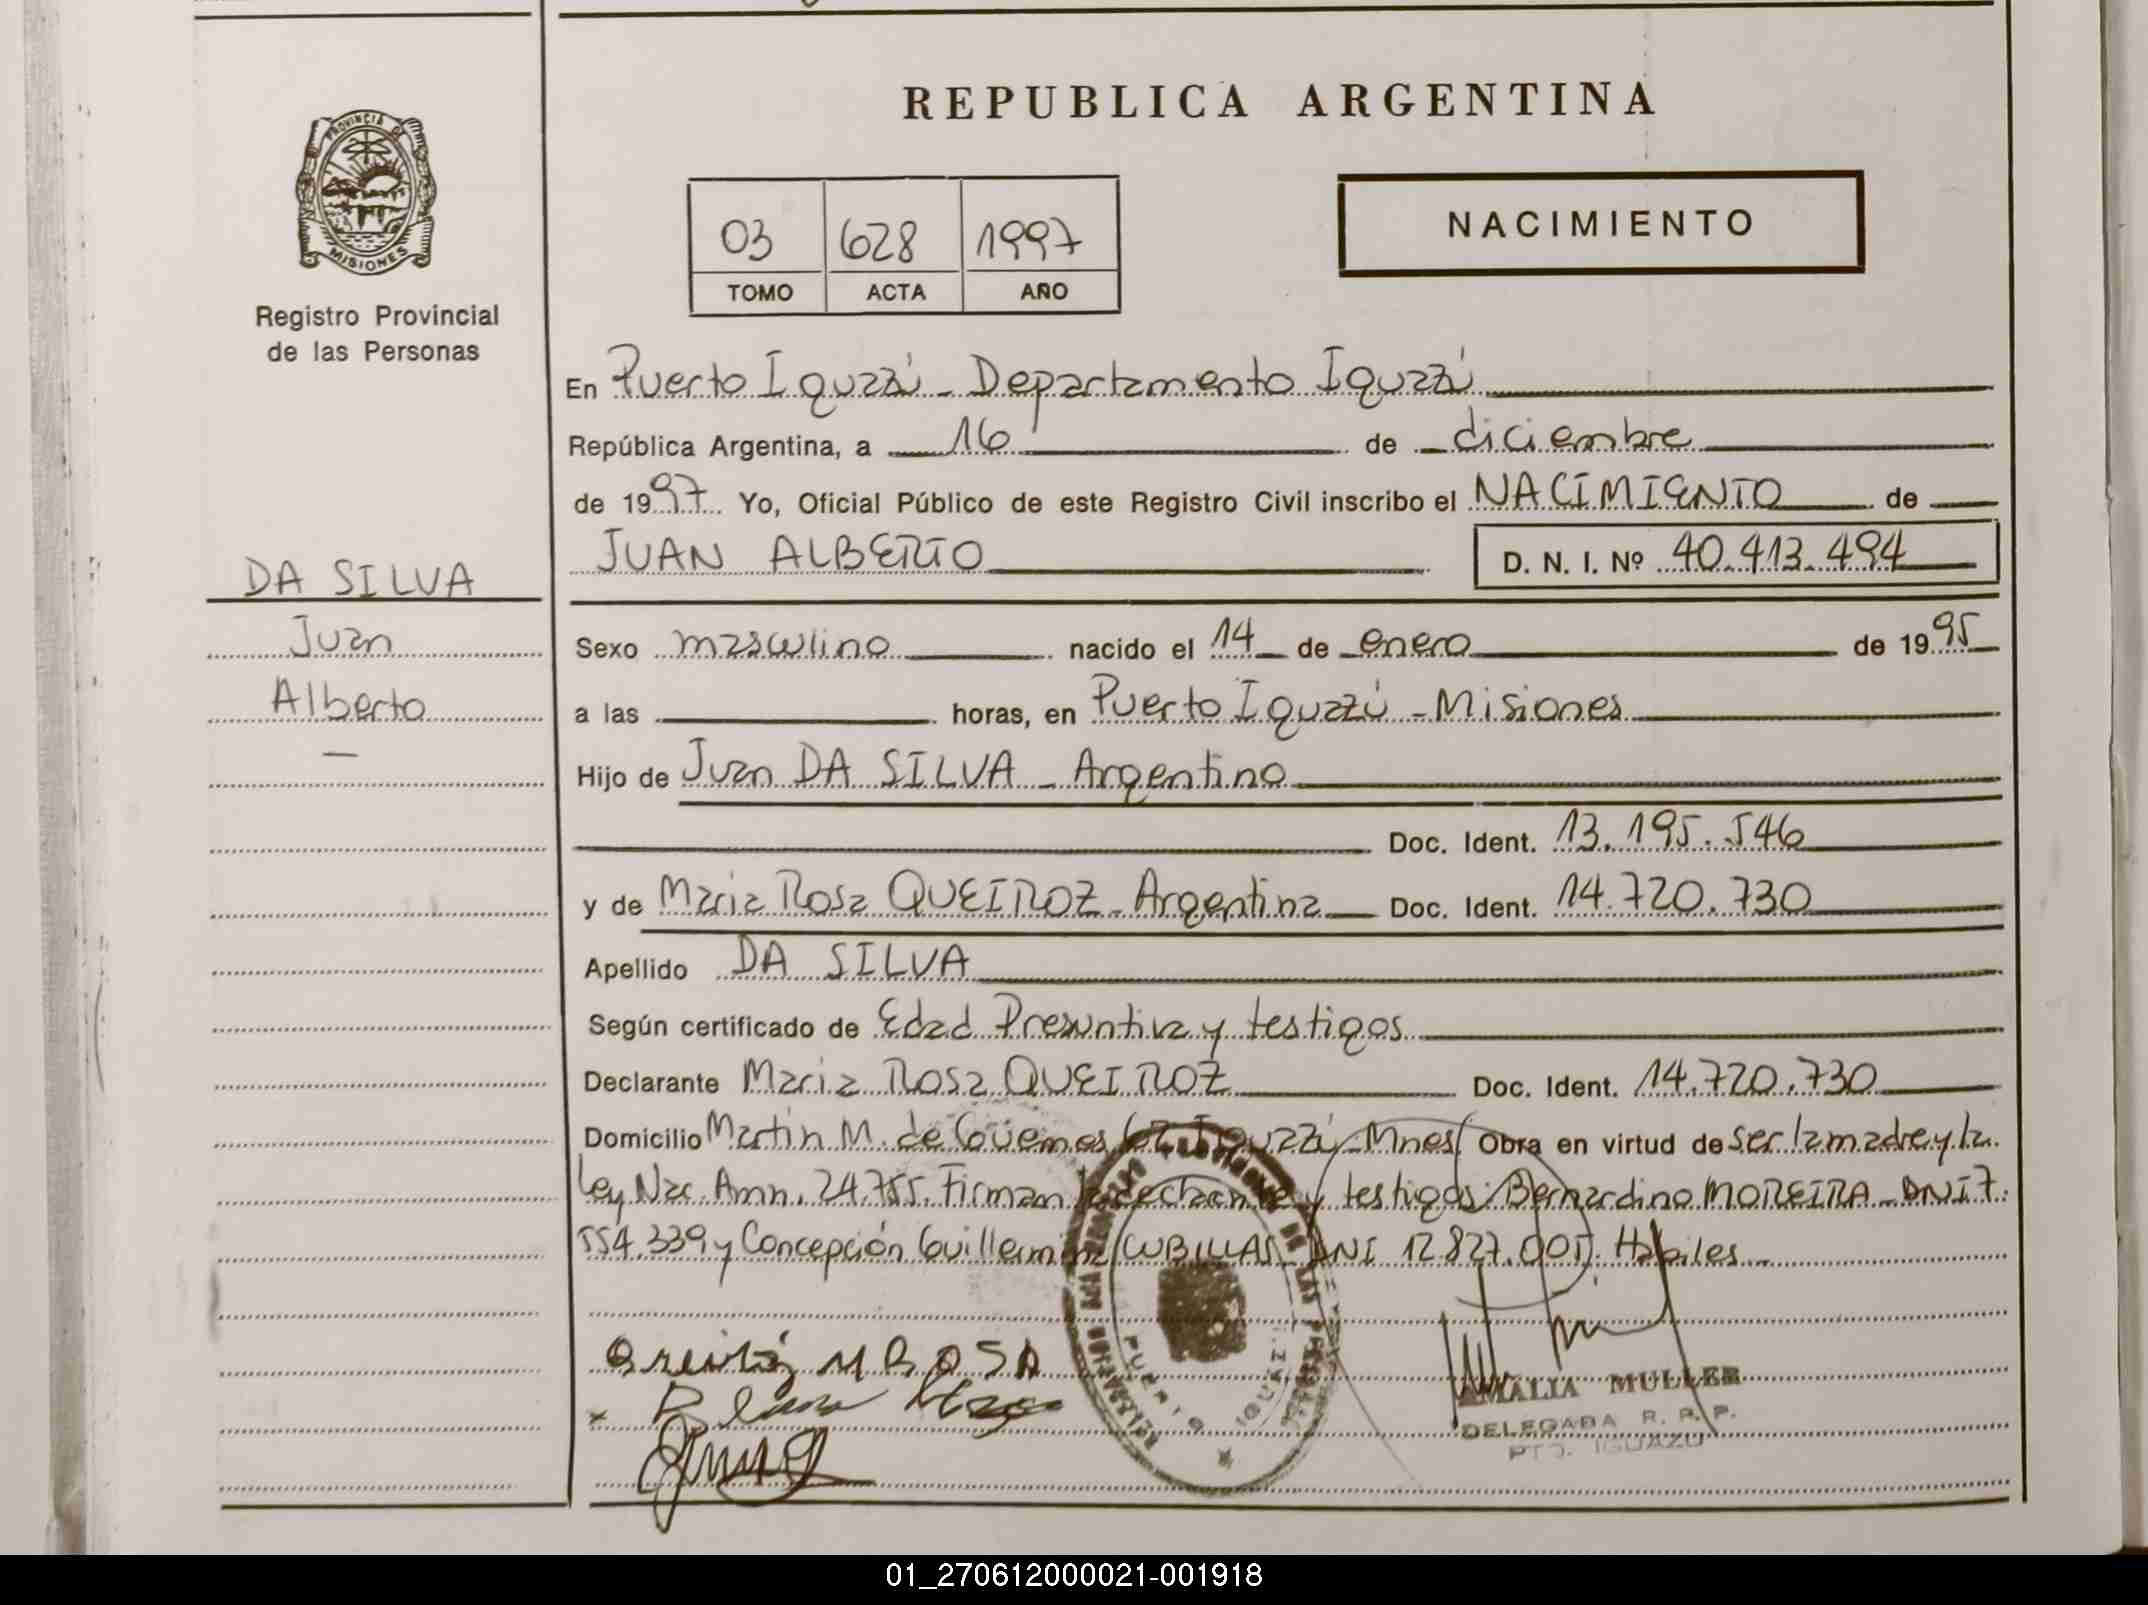 REPUBLICA ARGENTINA
PROVINCIA DE
MISIONES
Registro Provincial
de las Personas
03 628 1997
TOMO ACTA AÑO
NACIMIENTO
En Puerto Iguazú - Departamento Iguazú
República Argentina, a 16 de diciembre
de 1997 Yo, Oficial Público de este Registro Civil inscribo el NACIMIENTO de
JUAN ALBERTO D. N. I. Nº 40.413.494
DA SILVA
Juan
Alberto
Sexo masculino nacido el 14 de enero de 1995
a las horas, en Puerto Iguazú - Misiones
Hijo de Juan DA SILVA - Argentino
Doc. Ident. 13.195.546
y de Maria Rosa QUEIROZ - Argentina Doc. Ident. 14.720.730
Apellido DA SILVA
Según certificado de Edad Presuntiva y testigos
Declarante Maria Rosa QUEIROZ Doc. Ident. 14.720.730
Domicilio Martin M. de Güemes Iguazú - Mnes Obra en virtud de ser la madre y la
Ley Nac. Amn. 24.755. Firman la declarante y testigos: Bernardino MOREIRA - DNI 7.
554.339 y Concepción Guillermina CUBILLAS - DNI 12.827.005. Hábiles
M ROSA
PUERTO IGUAZU
AMALIA MULLER
DELEGADA R. P. P.
PTO. IGUAZU
01_270612000021-001918